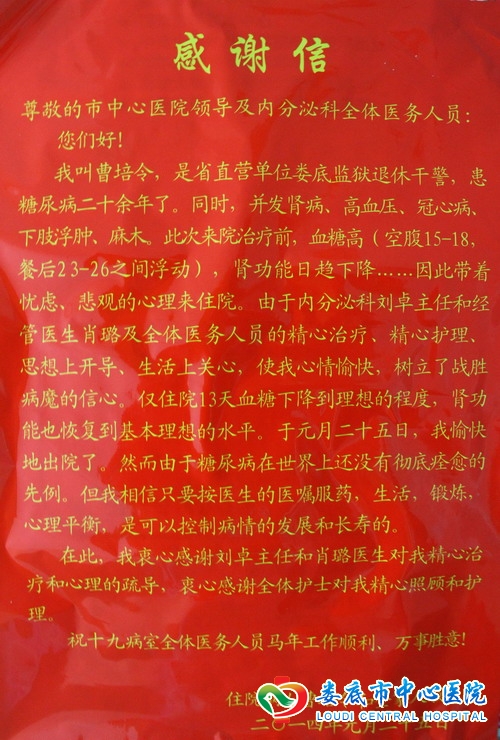 感谢信
尊敬的市中心医院领导及内分泌科全体医务人员：
您们好！
我叫曹培令，是省直营单位娄底监狱退休干警，患
糖尿病二十余年了。同时，并发肾病、高血压、冠心病、
下肢浮肿、麻木。此次来院治疗前，血糖高（空腹15-18，
餐后23-26之间浮动），肾功能日趋下降……因此带着
忧虑、悲观的心理来住院。由于内分泌科刘卓主任和经
管医生肖璐及全体医务人员的精心治疗、精心护理、
思想上开导、生活上关心，使我心情愉快，树立了战胜
病魔的信心。仅住院13天血糖下降到理想的程度，肾功
能也恢复到基本理想的水平。于元月二十五日，我愉快
地出院了。然而由于糖尿病在世界上还没有彻底痊愈的
先例。但我相信只要按医生的医嘱服药，生活，锻炼，
心理平衡，是可以控制病情的发展和长寿的。
在此，我衷心感谢刘卓主任和肖璐医生对我精心治
疗和心理的疏导，衷心感谢全体护士对我精心照顾和护
理。
祝十九病室全体医务人员马年工作顺利、万事胜意！
住院
娄底市中心医院
LOUDI CENTRAL HOSPITAL
二〇一四年元月二十五日